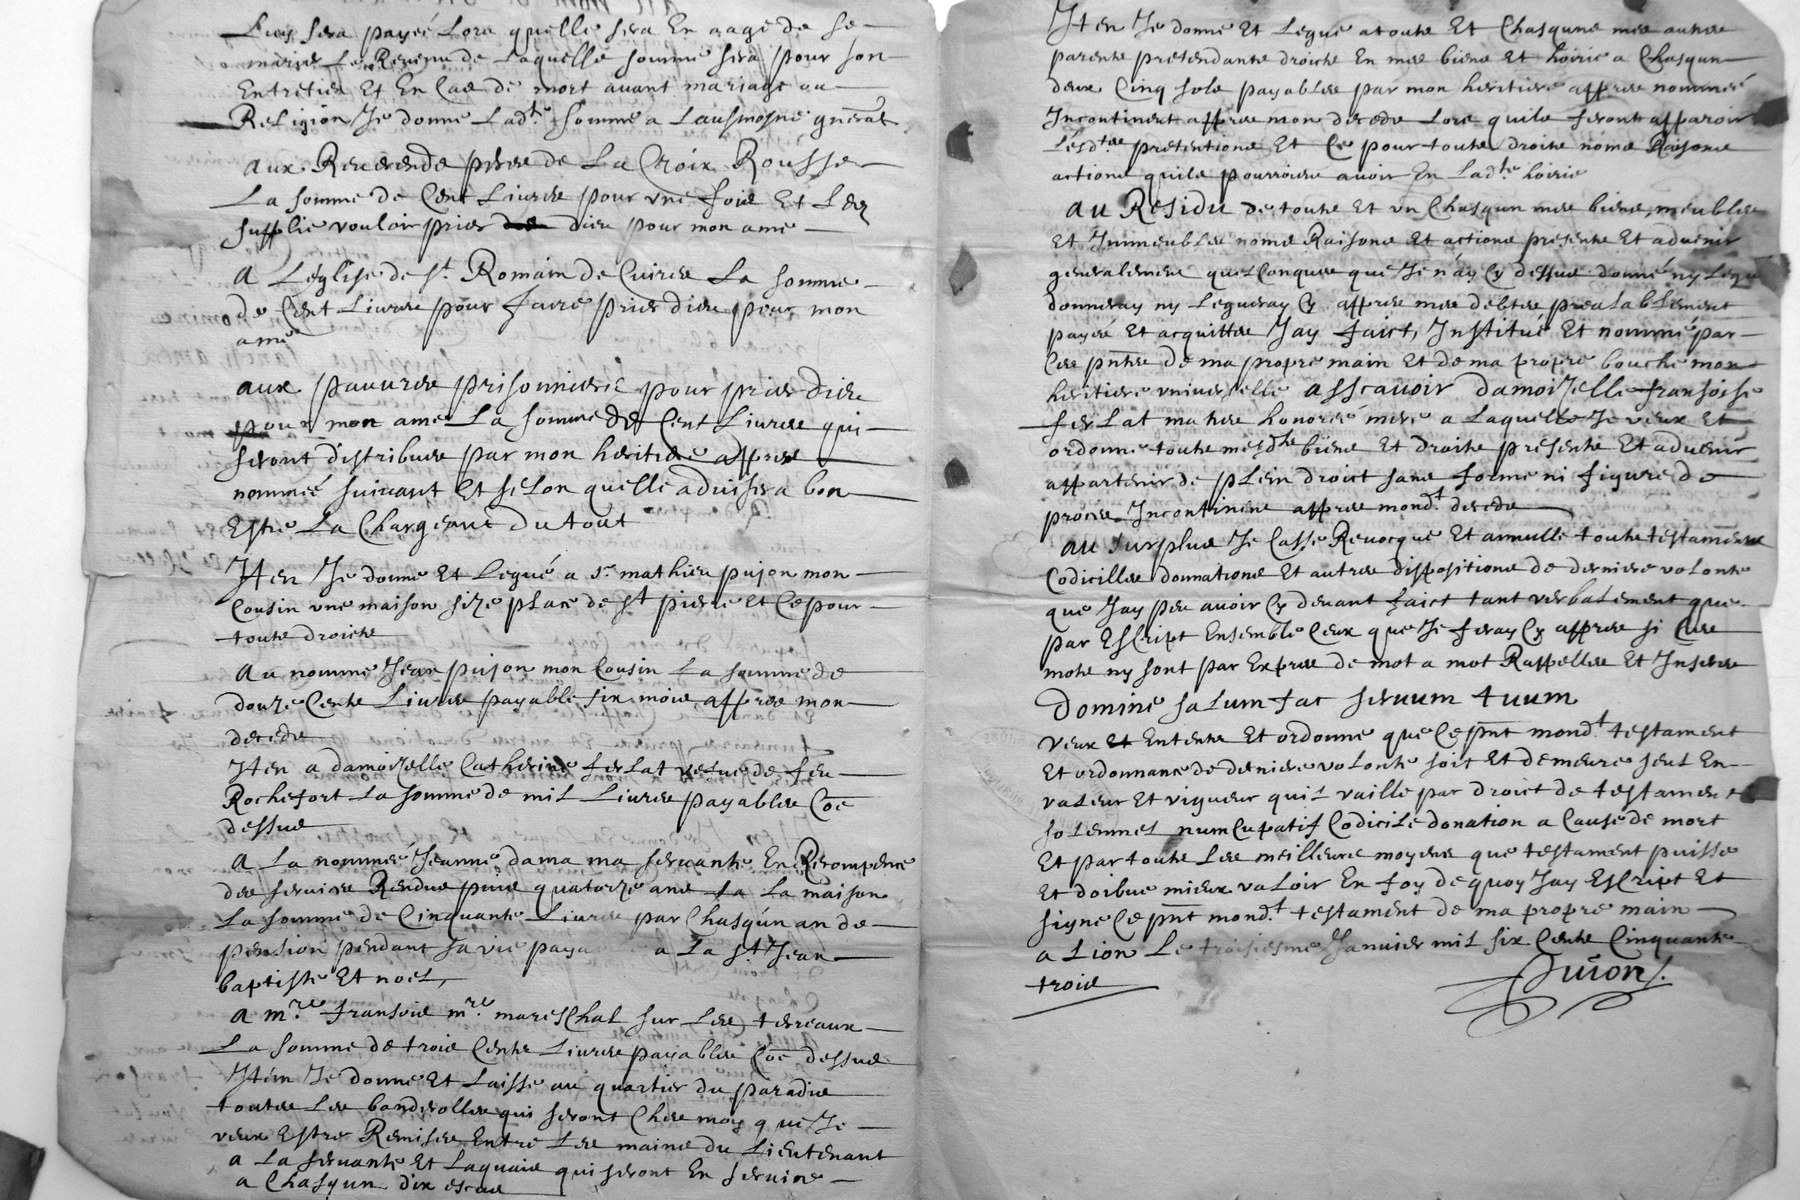 Luy sera payéé Lors quelle sera En aage de se
marier Le Revenu de Laquelle somme sera pour son
Entretien Et En Cas de mort avant mariage ou
Religion Je donne Ladte somme a Lausmosne gnéralle
aux Reverends peres de La Croix Rousse
La somme de Cent Livres pour une fois Et Les
supplie vouloir prier dieu pour mon ame
A Léglise de St Romain de Cuires La somme
de Cent Livres pour faire prier dieu pour mon
ame
aux pauvres prisonniers pour prier dieu
pour mon ame La somme de Cent Livres qui
seront distribues par mon heritiere appres
nommeé suivant Et selon quelle advisera bon
Estre La Chargeant du tout
Iten Je donne Et Legué a Sr mathieu pujon mon
Cousin une maison size place de St pierre Et Ce pour
touts droicts
Au nomme Jean pujon mon Cousin La somme de
douze Cents Livres payable six mois appres mon
deceds
Iten a damoizelle Catherine ferlat vefue de feu
Rochefort La somme de mil Livres payables Coe
dessus
A La nommeé Jeanne dama ma servante En Recompence
des services Rendus puis quatorze ans La La maison
La somme de Cinquante Livres par Chasqun an de
pension pendant sa vie paya a La St Jean
baptiste Et noel,
A mre fransois mre mareschal sur Les terreaux
La somme de trois Cents Livres payables Coe dessus
Itém Je donne Et Laisse au quartier du paradis
toutes Les banderolles qui seront Ches moy que Je
veux Estre Remises Entre Les mains du Lieutenant
a La servante Et Laquais qui seront En service
a Chasqun dix escus
Iten Je donne Et Legue a touts Et Chasquns mes autres
parents pretendants droicts En mes biens Et hoirie a Chasqun
deux Cinq sols payables par mon heritiere appres nommeé
Incontinent appres mon deceds Lors quils feront apparoir
Lesdtes pretentions Et Ce pour touts droits noms Raisons
actions quils pourroient avoir En Ladte hoirie
AU RESIDU de touts Et un Chasqun mes biens, meubles
Et Immeubles noms Raisons Et actions presents Et advenir
generalement quelconques que Je n'ay Cy dessus donné ny Légué
donneray ny Legueray Cy appres mes debtes prealablement
payés Et acquittes Jay faict, Institué Et nommé par
Ces pntes de ma propre main Et de ma propre bouche mon
heritiere universelle asscavoir damoizelle fransoise
ferlat ma tres honoreé mere a Laquelle Je veux Et
ordonne touts mesdts biens Et droits presents Et advenir
appartenir de plein droict sans forme ni figure de
proces Incontinent appres mondt deceds
au surplus Je Casse Revocque Et annulle touts testaments
Codicilles donnations Et autres dispositions de derniere volonte
que Jay peu avoir Cy devant faict tant verbalement que
par Escript Ensemble Ceux que Je feray Cy appres si Ces
mots ny sont par Expres de mot a mot Rappelles Et Inseres
Domine salum fac servum tuum
veux Et Entents Et ordonne que Ce pnt mondt testament
Et ordonnance de derniere volonte soit Et demeure seul En
valeur Et vigueur quil vaille par droict de testament
solemnel numcupatif Codicile donation a Cause de mort
Et par touts Les meilleurs moyens que testament puisse
Et doibue mieux valoir En foy de quoy Jay Escript Et
signe Ce pnt mondt testament de ma propre main
a Lion Le troisiesme Janvier mil six Cents Cinquante
trois